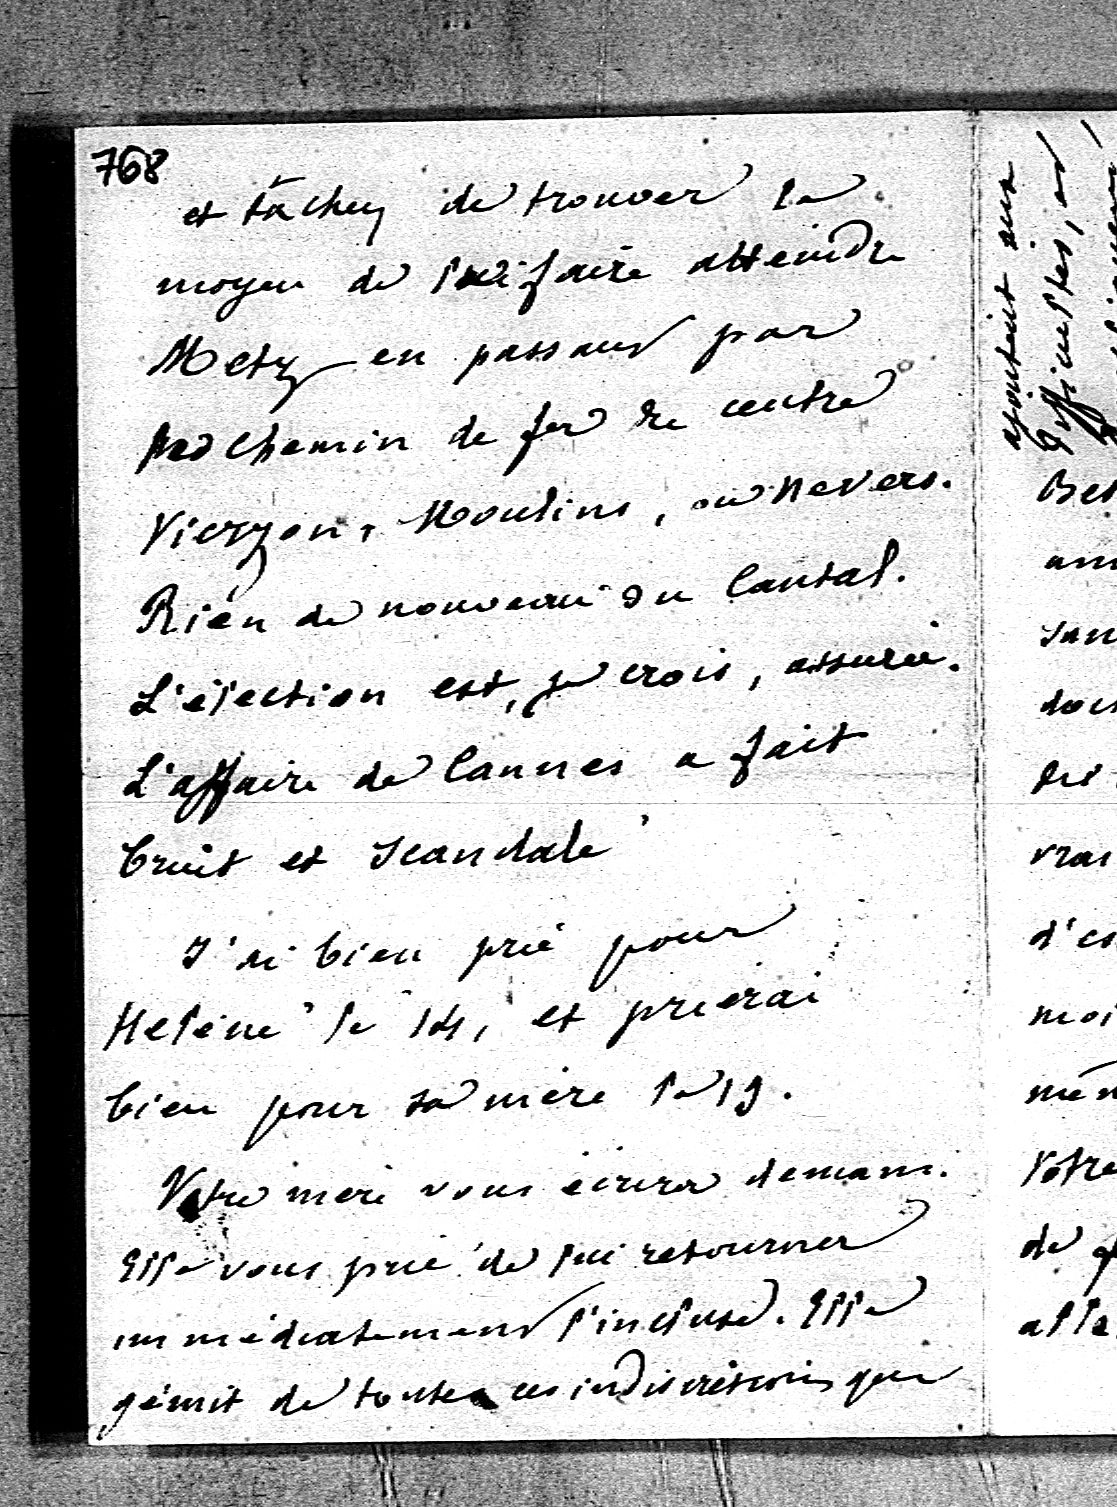 768
et tâchez de trouver le
moyen de lui faire atteindre
Metz en passant par
les chemin de fer du centre
Vierzon, Moulins, ou Nevers.
Rien de nouveau du Cantal.
L'élection est, je crois, assurée.
L'affaire de Cannes a fait
bruit et scandale
J'ai bien prié pour
Helène le 14, et prierai
bien pour sa mère le 19.
Votre mère vous écrira demain.
Elle vous prie de lui retourner
immédiatement l'incluse. Elle
gémit de toutes ces indiscrétions que
ajoutent aux
vrai
d'es
moi
Votre
de